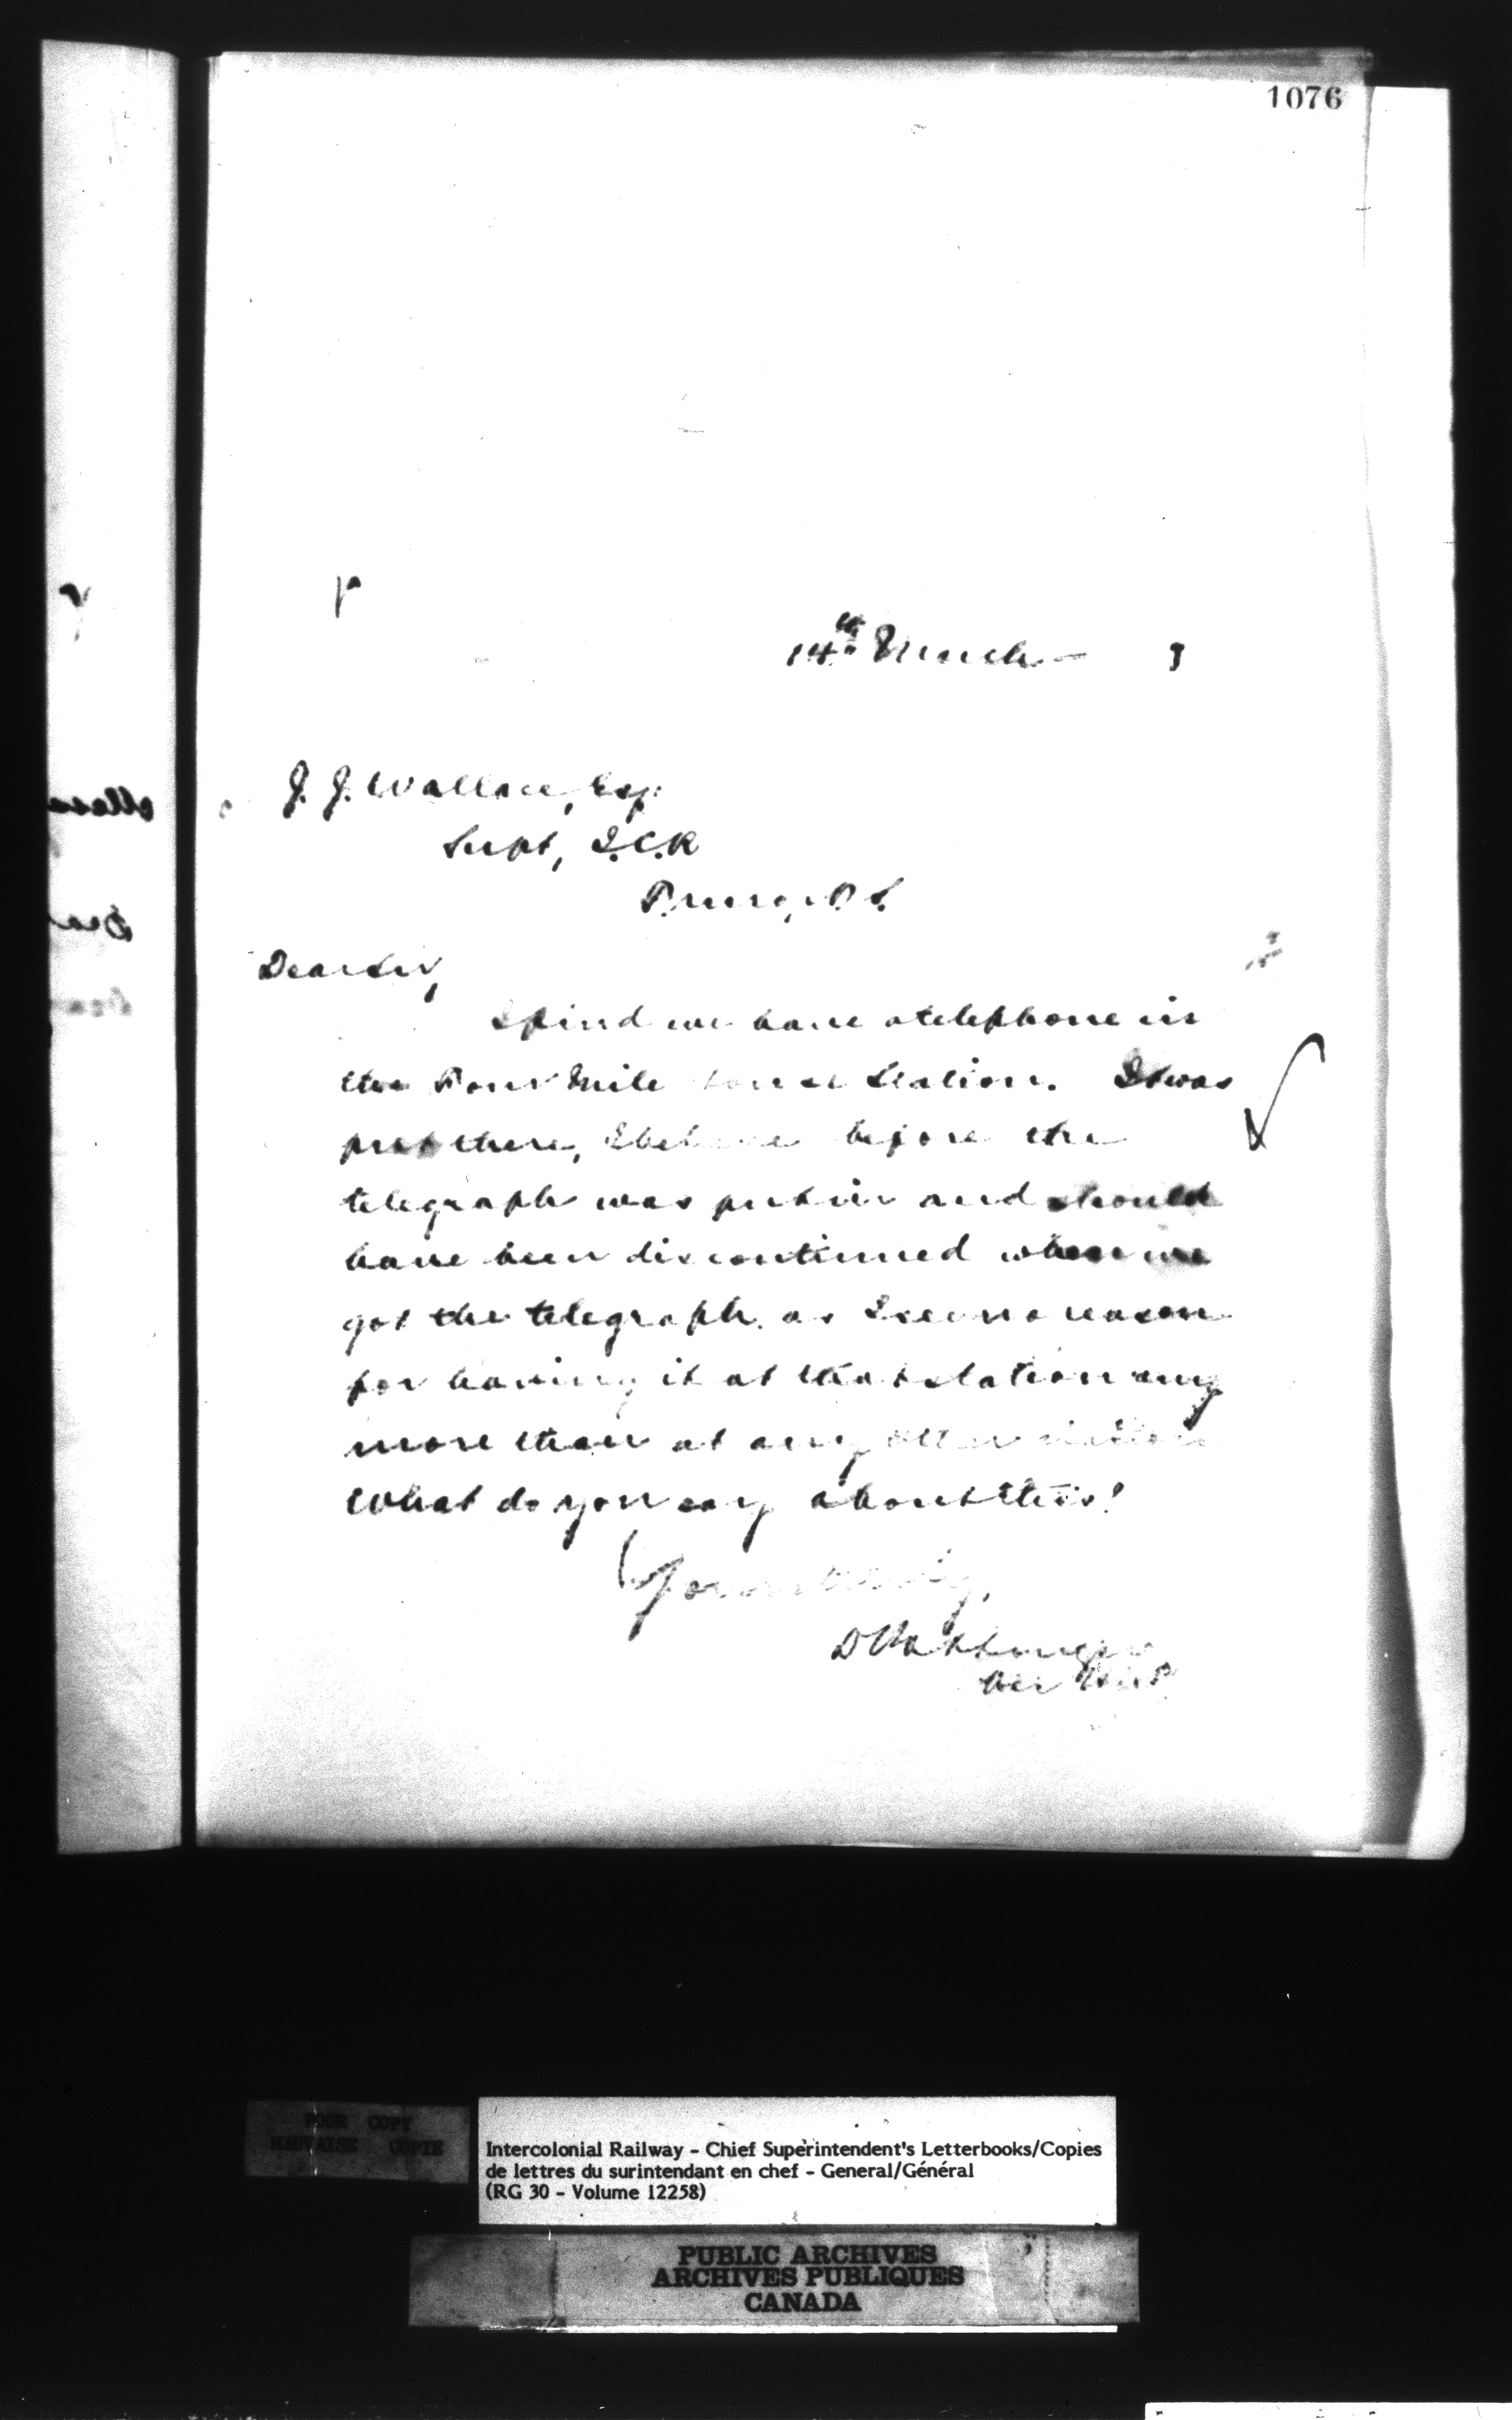 1076
14th March 9
J. J. Wallace, Esq.
Supt, I.C.R
Truro, N.S.
Dear Sir,
I find we have a telephone in
the Four Mile House Station. It was
put there, I believe before the
telegraph was put in and should
have been discontinued when we
got the telegraph. as I see no reason
for having it at that station any
more than at any other station
What do you say about this?
Yours truly,
D Pottinger
POOR COPY
MAUVAISE COPIE
Intercolonial Railway - Chief Superintendent's Letterbooks/Copies
de lettres du surintendant en chef - General/Général
(RG 30 - Volume 12258)
PUBLIC ARCHIVES
ARCHIVES PUBLIQUES
CANADA